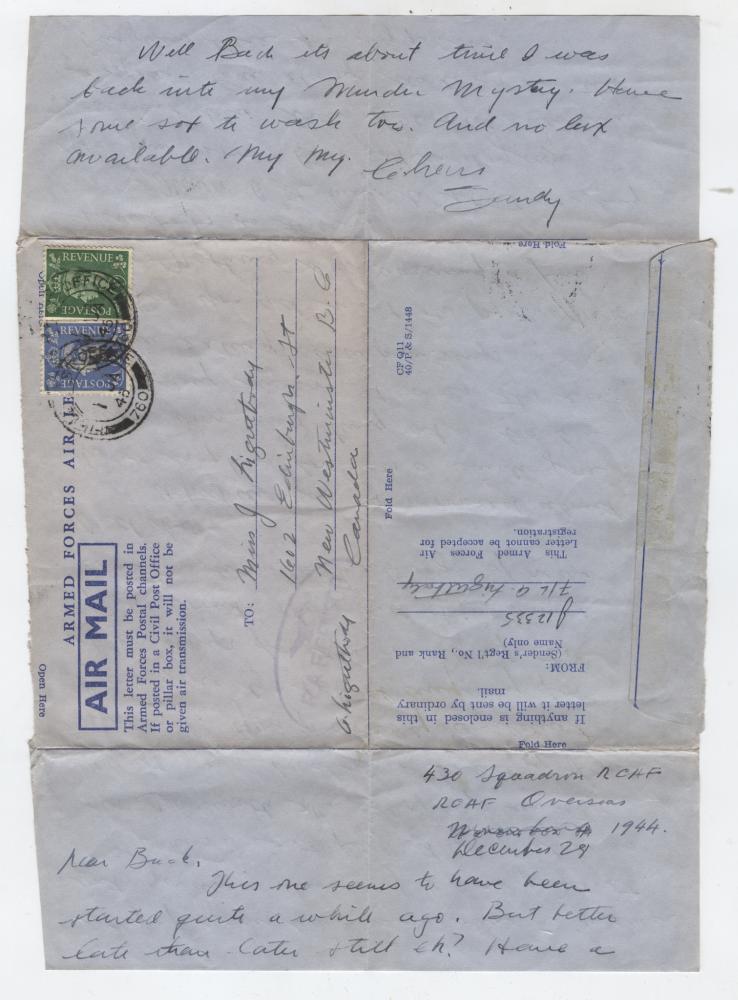 Well Buck its about time I was
back into my Murder Mystery. Have
some sox to wash too. And no lux
available. My My.
Cheers
Fold Here
REVENUE
POSTAGE
REVENUE
POSTAGE
760
Open Here
ARMED FORCES AIR LE
AIR MAIL
This letter must be posted in
Armed Forces Postal channels.
If posted in a Civil Post Office
or pillar box, it will not be
given air transmission.
Open Here
TO: Miss J Ligatbody
1602 Edinburgh St
New Westminster B.C
Canada
CF Q11
40/P & S/1448
Fold Here
If anything is enclosed in this
letter it will be sent by ordinary
mail.
FROM:
(Sender's Regt'l No., Rank and
Name only)
J12335
F/L
This Armed Forces Air
Letter cannot be accepted for
registration.
Fold Here
430 Squadron RCAF
RCAF Overseas
1944.
December 29
Dear Buck,
This one seems to have been
started quite a while ago. But better
late than later still eh? Have a